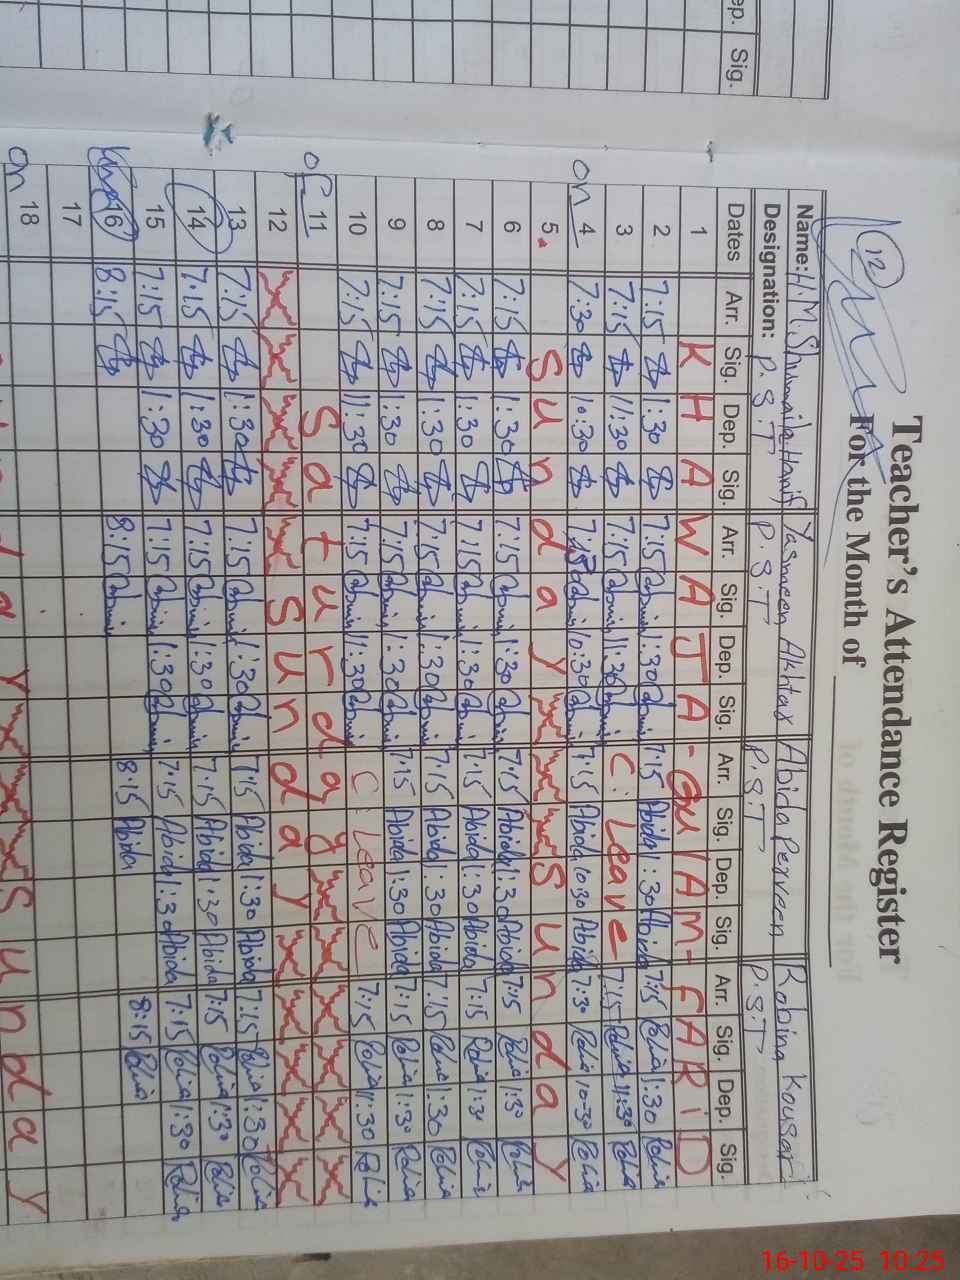 ep. Sig.
Teacher's Attendance Register
12 For the Month of
Name: H.M. Shumaila Hanif Yasmeen Akhtar Abida Perveen Robina Kousar
Designation: P.S.T P.S.T P.S.T P.S.T
Dates Arr. Sig. Dep. Sig. Arr. Sig. Dep. Sig. Arr. Sig. Dep. Sig. Arr. Sig. Dep. Sig.
1 KHAWAJA-GulAM-FARiD
2 7:15 1:30 7:15 1:30 7:15 Abida 1:30 Abida 7:15 1:30
3 7:15 11:30 7:15 11:30 C: Leave 7:15 11:30
on 4 7:30 10:30 10:30 7:15 Abida 10:30 Abida 7:30 10:30
5. Sunday Sunday
6 7:15 1:30 7:15 1:30 7:15 Abida 1:30 Abida 7:15 1:30
7 7:15 1:30 7:15 1:30 7:15 Abida 1:30 Abida 7:15 1:3
8 7:15 1:30 7:15 1:30 7:15 Abida 1:30 Abida 7:15 1:30
9 7:15 1:30 7:15 1:30 7:15 Abida 1:30 Abida 7:15 1:30
10 7:15 11:30 7:15 11:30 C: Leave 7:15 11:30
of 11 Saturday
12 Sunday
13 7:15 1:30 7:15 1:30 7:15 Abida 1:30 Abida 7:15 1:30
14 7:15 1:30 7:15 1:30 7:15 Abida 1:30 Abida 7:15 1:30
15 7:15 1:30 7:15 1:30 7:15 Abida 1:30 Abida 7:15 1:30
16 8:15 8:15 8:15 Abida 8:15
17
on 18
day Sunday
16-10-25 10:25